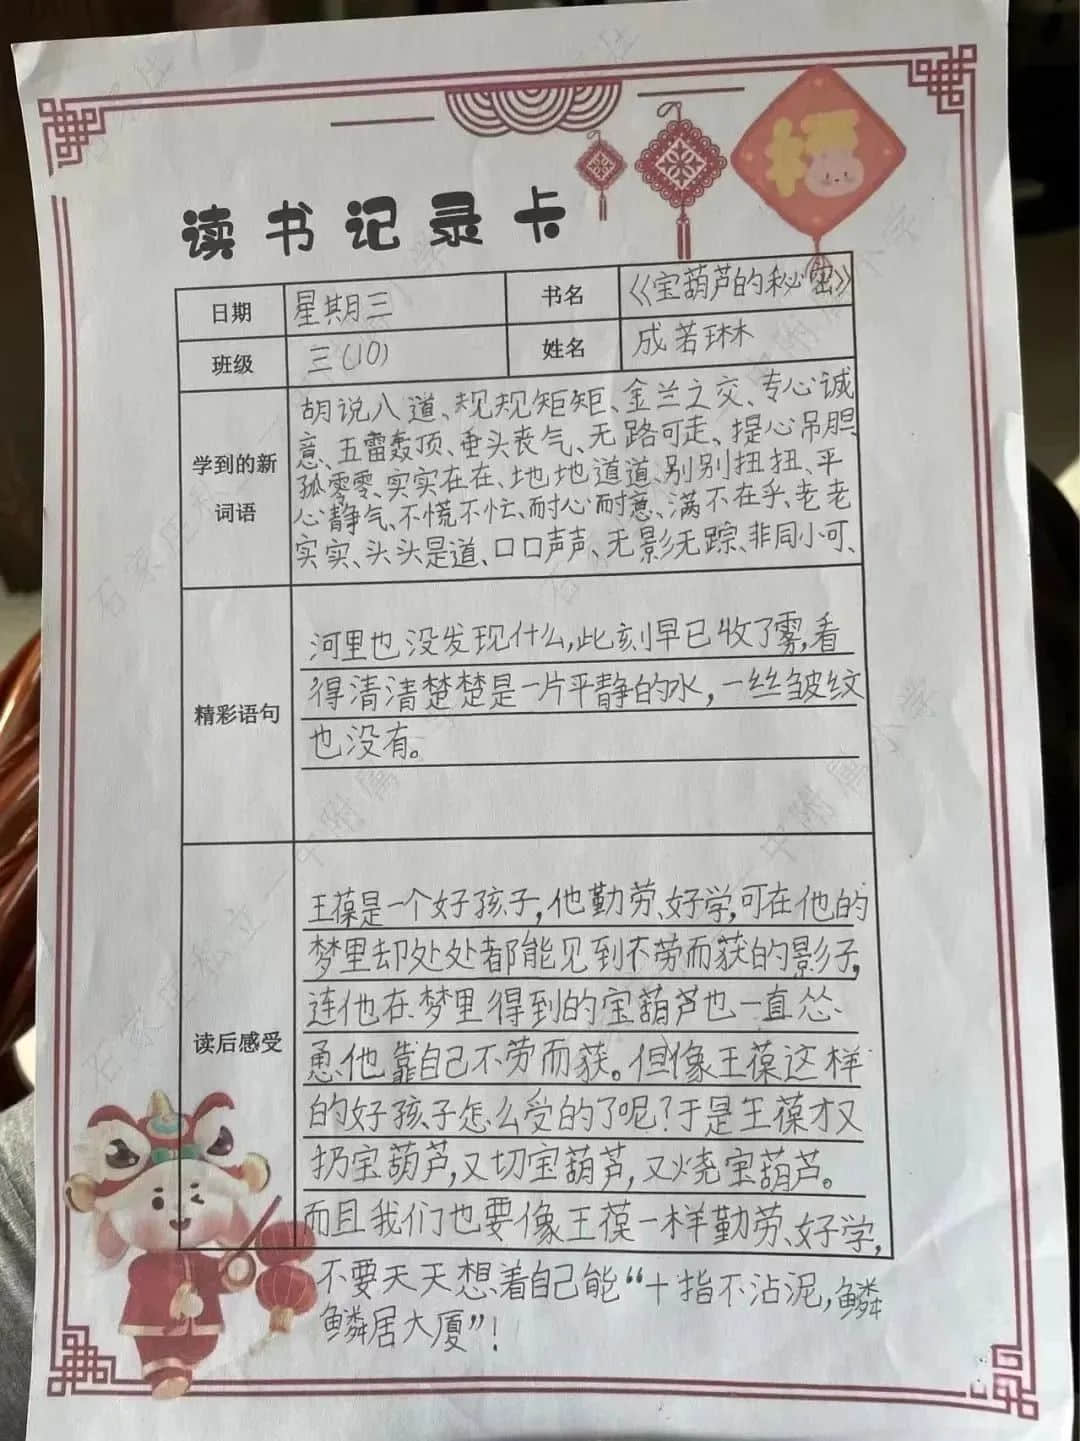 福
读书记录卡
日期 星期三 书名 《宝葫芦的秘密》
班级 三(10) 姓名 成若琳
学到的新词语
胡说八道、规规矩矩、金兰之交、专心诚
意、五雷轰顶、垂头丧气、无路可走、提心吊胆、
孤零零、实实在在、地地道道、别别扭扭、平
心静气、不慌不忙、耐心耐意、满不在乎、老老
实实、头头是道、口口声声、无影无踪、非同小可、
精彩语句
河里也没发现什么,此刻早已收了雾,看
得清清楚楚是一片平静的水,一丝皱纹
也没有。
读后感受
王葆是一个好孩子,他勤劳、好学,可在他的
梦里却处处都能见到不劳而获的影子,
连他在梦里得到的宝葫芦也一直怂
恿他靠自己不劳而获。但像王葆这样
的好孩子怎么受的了呢?于是王葆才又
扔宝葫芦,又切宝葫芦,又烧宝葫芦。
而且我们也要像王葆一样勤劳、好学,
不要天天想着自己能“十指不沾泥,鳞
鳞居大厦”!
石家庄私立一中附属小学